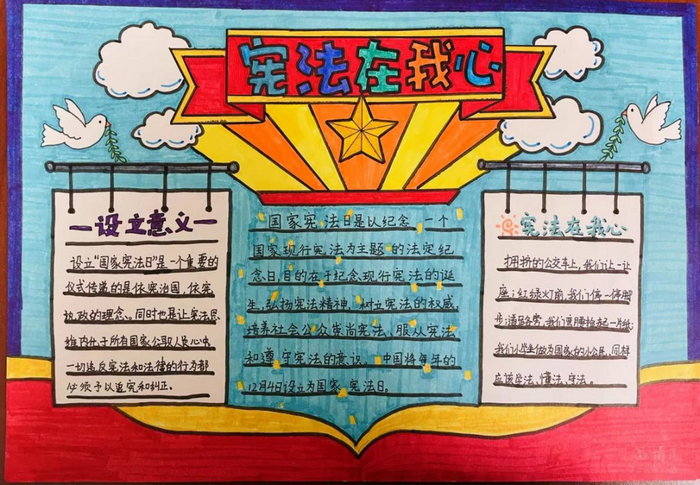 宪法在我心
一设立意义一
设立“国家宪法日”是一个重要的
仪式传递的是依宪治国、依宪
执政的理念。同时也是让宪法思
维内化于所有国家公职人员心中
一切违反宪法和法律的行为都
必须予以追究和纠正。
国家宪法日是以纪念一个
国家现行宪法为主题的法定纪
念日,目的在于纪念现行宪法的诞
生,弘扬宪法精神,树立宪法的权威,
培养社会公众崇尚宪法、服从宪法
和遵守宪法的意识。中国将每年的
12月4日设立为国家宪法日。
宪法在我心
拥挤的公交车上,我们让一让
座;红绿灯前,我们停一停脚
步;遇见
我们弯腰拾起一片纸;
我们从小做
国家的小公民,同样
应该学法、懂法、守法。